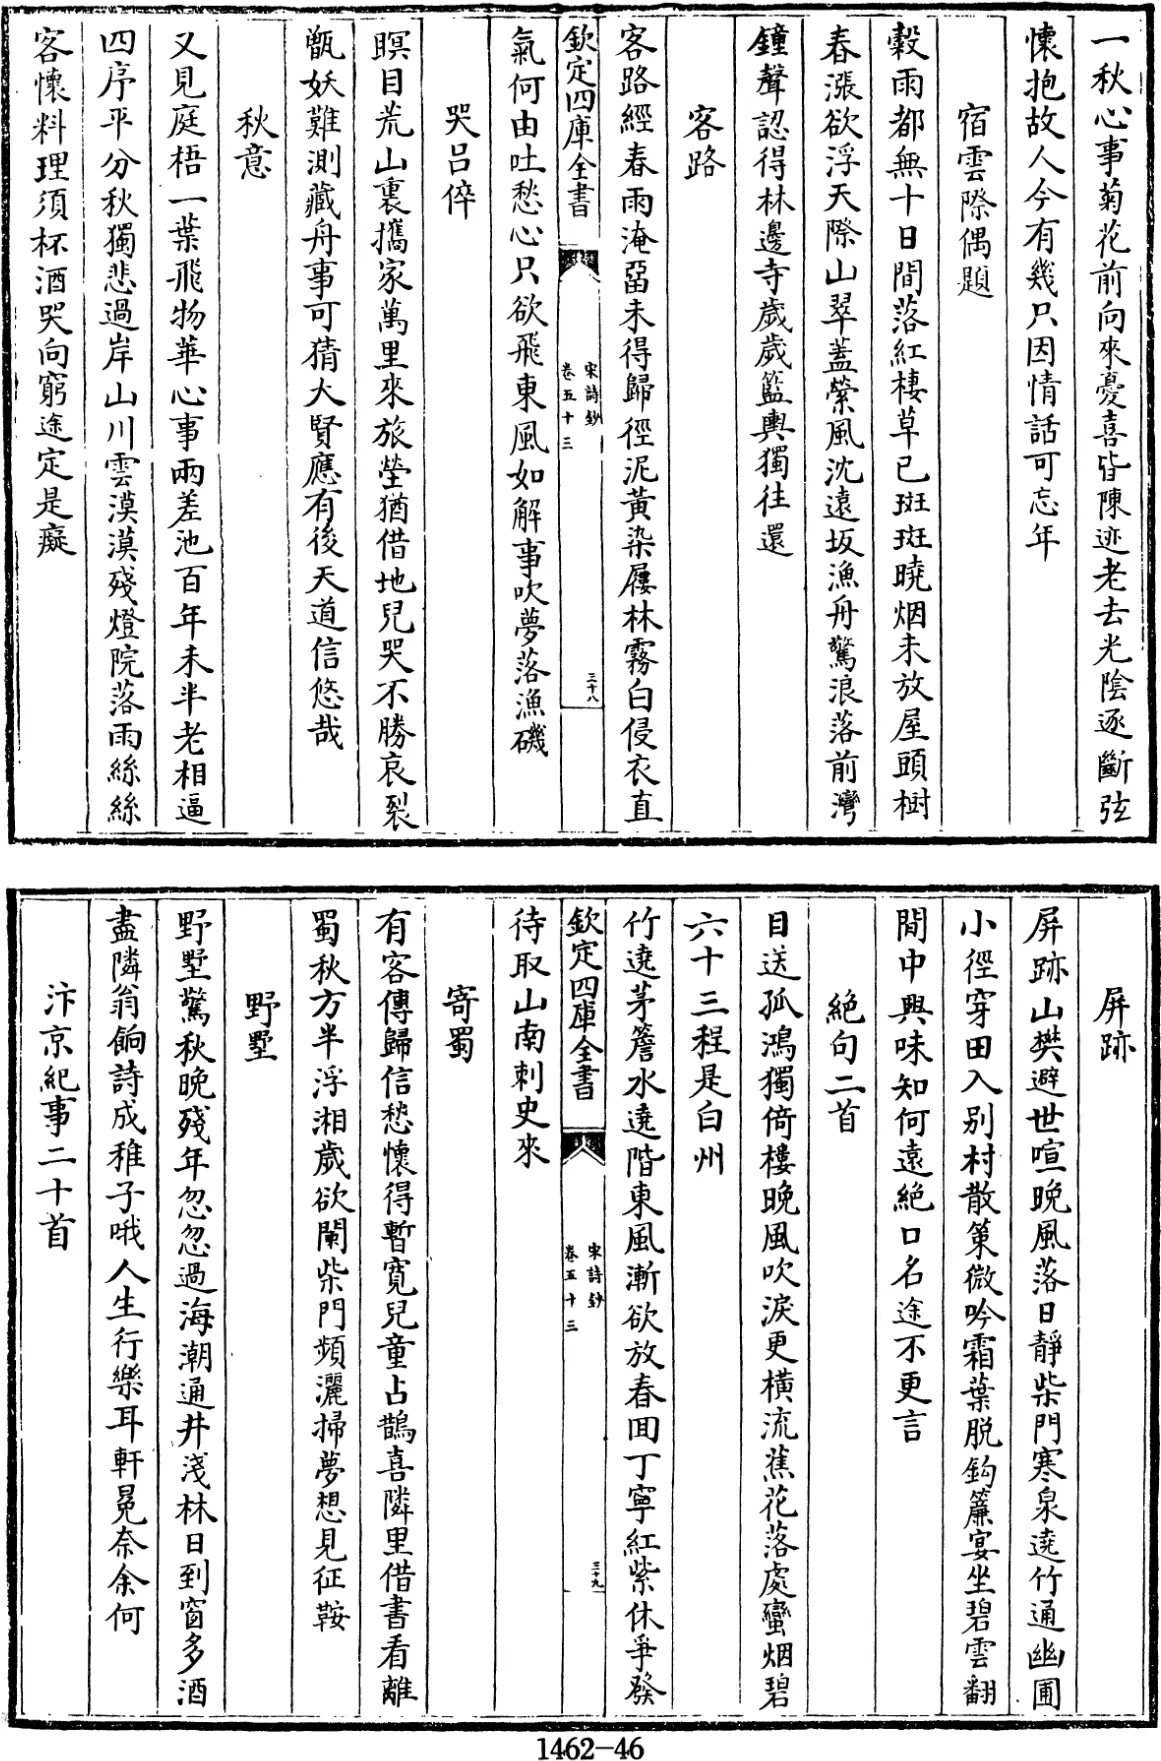 一秋心事菊花前向來憂喜皆陳迹老去光陰逐斷弦
懷抱故人今有幾只因情話可忘年
宿雲際偶題
穀雨都無十日間落紅棲草已斑斑曉烟未放屋頭樹
春漲欲浮天際山翠蓋縈風沈遠坂漁舟驚浪落前灣
鐘聲認得林邊寺歲歲籃輿獨往還
客路
客路經春雨淹留未得歸徑泥黃染屨林霧白侵衣直
欽定四庫全書
宋詩鈔
卷五十三
三十八
氣何由吐愁心只欲飛東風如解事吹夢落漁磯
哭呂倅
瞑目荒山裏攜家萬里來旅塋猶借地兒哭不勝哀裂
甑妖難測藏舟事可猜大賢應有後天道信悠哉
秋意
又見庭梧一葉飛物華心事兩差池百年未半老相逼
四序平分秋獨悲過岸山川雲漠漠殘燈院落雨絲絲
客懷料理須杯酒哭向窮途定是癡
屏跡
屏跡山樊避世喧晚風落日靜柴門寒泉遶竹通幽圃
小徑穿田入别村散策微吟霜葉脱鈎簾宴坐碧雲翻
閒中興味知何遠絶口名途不更言
絶句二首
目送孤鴻獨倚樓晚風吹淚更横流蕉花落處蠻烟碧
六十三程是白州
竹遶茅簷水遶階東風漸欲放春回丁寧紅紫休爭發
欽定四庫全書
宋詩鈔
卷五十三
三十九
待取山南刺史來
寄蜀
有客傳歸信愁懷得暫寬兒童占鵲喜隣里借書看離
蜀秋方半浮湘歲欲闌柴門頻灑掃夢想見征鞍
野墅
野墅驚秋晚殘年忽忽過海潮通井淺林日到窗多酒
盡隣翁餉詩成稚子哦人生行樂耳軒冕奈余何
汴京紀事二十首
1462-46